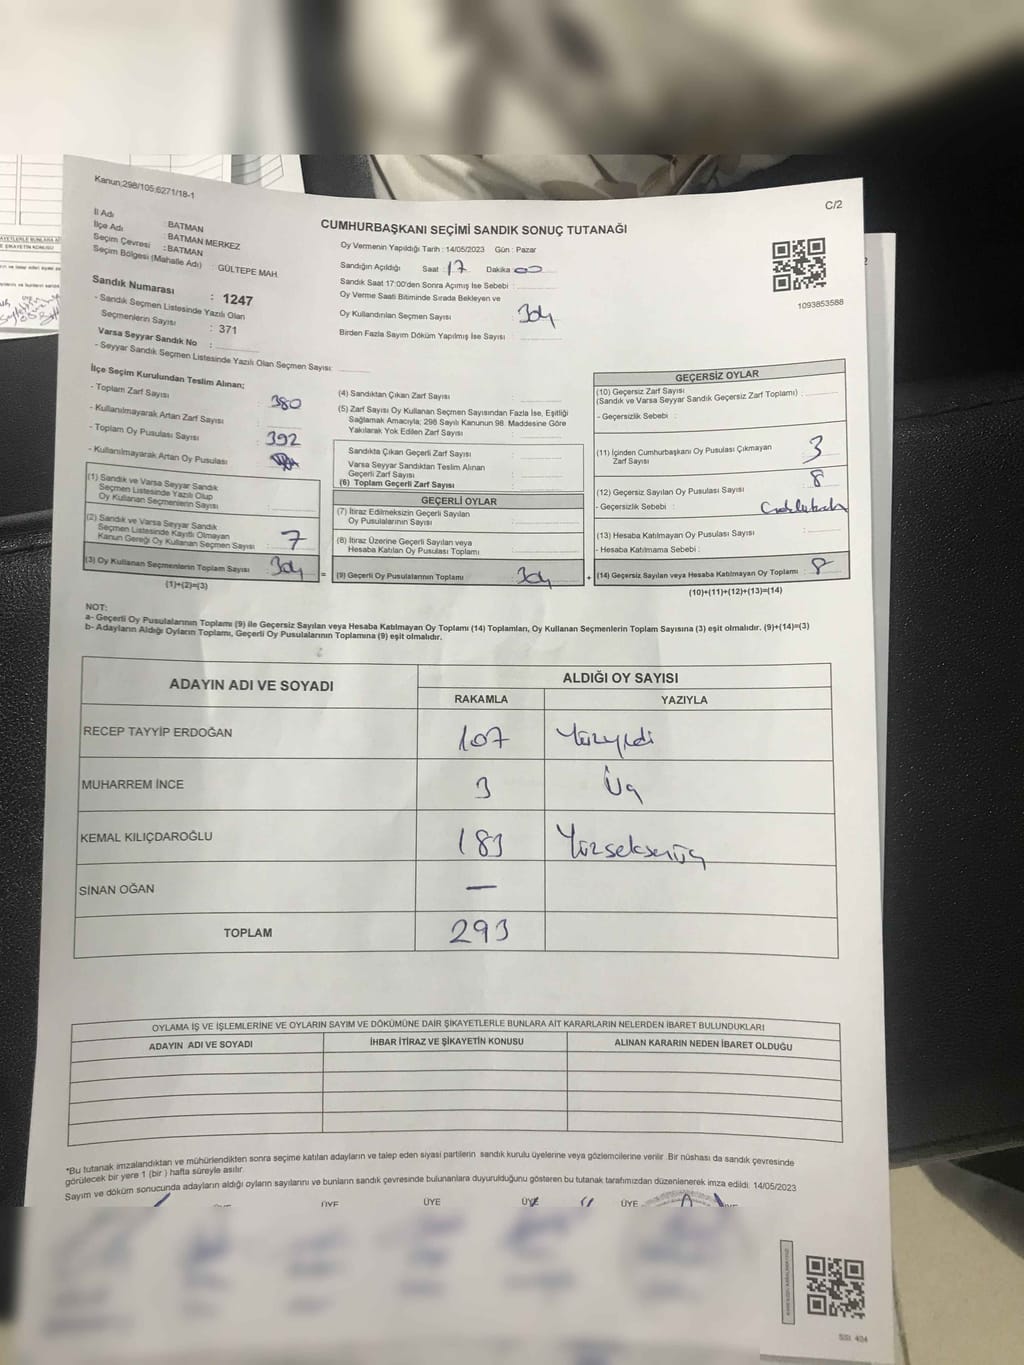 Kanun;298/105;6271/18-1
C/2
İl Adı : BATMAN
İlçe Adı : BATMAN MERKEZ
Seçim Çevresi : BATMAN
Seçim Bölgesi (Mahalle Adı) : GÜLTEPE MAH.
CUMHURBAŞKANI SEÇİMİ SANDIK SONUÇ TUTANAĞI
Oy Vermenin Yapıldığı Tarih : 14/05/2023 Gün : Pazar
Sandığın Açıldığı Saat : 17 Dakika 00
Sandık Saat 17:00'den Sonra Açımış İse Sebebi :
Oy Verme Saati Bitiminde Sırada Bekleyen ve
Oy Kullandırılan Seçmen Sayısı : 304
Birden Fazla Sayım Döküm Yapılmış İse Sayısı
1093853588
Sandık Numarası : 1247
- Sandık Seçmen Listesinde Yazılı Olan
Seçmenlerin Sayısı : 371
Varsa Seyyar Sandık No :
- Seyyar Sandık Seçmen Listesinde Yazılı Olan Seçmen Sayısı:
İlçe Seçim Kurulundan Teslim Alınan;
- Toplam Zarf Sayısı : 380
- Kullanılmayarak Artan Zarf Sayısı :
- Toplam Oy Pusulası Sayısı : 392
- Kullanılmayarak Artan Oy Pusulası
(1) Sandık ve Varsa Seyyar Sandık
Seçmen Listesinde Yazılı Olup
Oy Kullanan Seçmenlerin Sayısı :
(2) Sandık ve Varsa Seyyar Sandık
Seçmen Listesinde Kayıtlı Olmayan
Kanun Gereği Oy Kullanan Seçmen Sayısı : 7
(3) Oy Kullanan Seçmenlerin Toplam Sayısı : 304
(1)+(2)=(3)
(4) Sandıktan Çıkan Zarf Sayısı :
(5) Zarf Sayısı Oy Kullanan Seçmen Sayısından Fazla İse, Eşitliği
Sağlamak Amacıyla; 298 Sayılı Kanunun 98. Maddesine Göre
Yakılarak Yok Edilen Zarf Sayısı :
Sandıkta Çıkan Geçerli Zarf Sayısı :
Varsa Seyyar Sandıktan Teslim Alınan
Geçerli Zarf Sayısı :
(6) Toplam Geçerli Zarf Sayısı :
GEÇERLİ OYLAR
(7) İtiraz Edilmeksizin Geçerli Sayılan
Oy Pusulalarının Sayısı :
(8) İtiraz Üzerine Geçerli Sayılan veya
Hesaba Katılan Oy Pusulası Toplamı :
= (9) Geçerli Oy Pusulalarının Toplamı : 304
GEÇERSİZ OYLAR
(10) Geçersiz Zarf Sayısı
(Sandık ve Varsa Seyyar Sandık Geçersiz Zarf Toplamı) :
- Geçersizlik Sebebi :
(11) İçinden Cumhurbaşkanı Oy Pusulası Çıkmayan
Zarf Sayısı : 3
(12) Geçersiz Sayılan Oy Pusulası Sayısı : 8
- Geçersizlik Sebebi :
(13) Hesaba Katılmayan Oy Pusulası Sayısı :
- Hesaba Katılmama Sebebi :
+ (14) Geçersiz Sayılan veya Hesaba Katılmayan Oy Toplamı : 8
(10)+(11)+(12)+(13)=(14)
NOT:
a- Geçerli Oy Pusulasının Toplamı (9) ile Geçersiz Sayılan veya Hesaba Katılmayan Oy Toplamı (14) Toplamları, Oy Kullanan Seçmenlerin Toplam Sayısına (3) eşit olmalıdır. (9)+(14)=(3)
b- Adayların Aldığı Oyların Toplamı, Geçerli Oy Pusulalarının Toplamına (9) eşit olmalıdır.
ADAYIN ADI VE SOYADI
ALDIĞI OY SAYISI
RAKAMLA YAZIYLA
RECEP TAYYİP ERDOĞAN 107 Yüzyedi
MUHARREM İNCE 3 Üç
KEMAL KILIÇDAROĞLU 183 Yüzseksenüç
SİNAN OĞAN —
TOPLAM 293
OYLAMA İŞ VE İŞLEMLERİNE VE OYLARIN SAYIM VE DÖKÜMÜNE DAİR ŞİKAYETLERLE BUNLARA AİT KARARLARIN NELERDEN İBARET BULUNDUKLARI
ADAYIN ADI VE SOYADI İHBAR İTİRAZ VE ŞİKAYETİN KONUSU ALINAN KARARIN NEDEN İBARET OLDUĞU
*Bu tutanak imzalandıktan ve mühürlendikten sonra seçime katılan adayların ve talep eden siyasi partilerin sandık kurulu üyelerine veya gözlemcilerine verilir. Bir nüshası da sandık çevresinde
görülecek bir yere 1 (bir ) hafta süreyle asılır.
Sayım ve döküm sonucunda adayların aldığı oyların sayılarını ve bunların sandık çevresinde bulunanlara duyurulduğunu gösteren bu tutanak tarafımızdan düzenlenerek imza edildi. 14/05/2023
ÜYE ÜYE ÜYE ÜYE
SSI 404